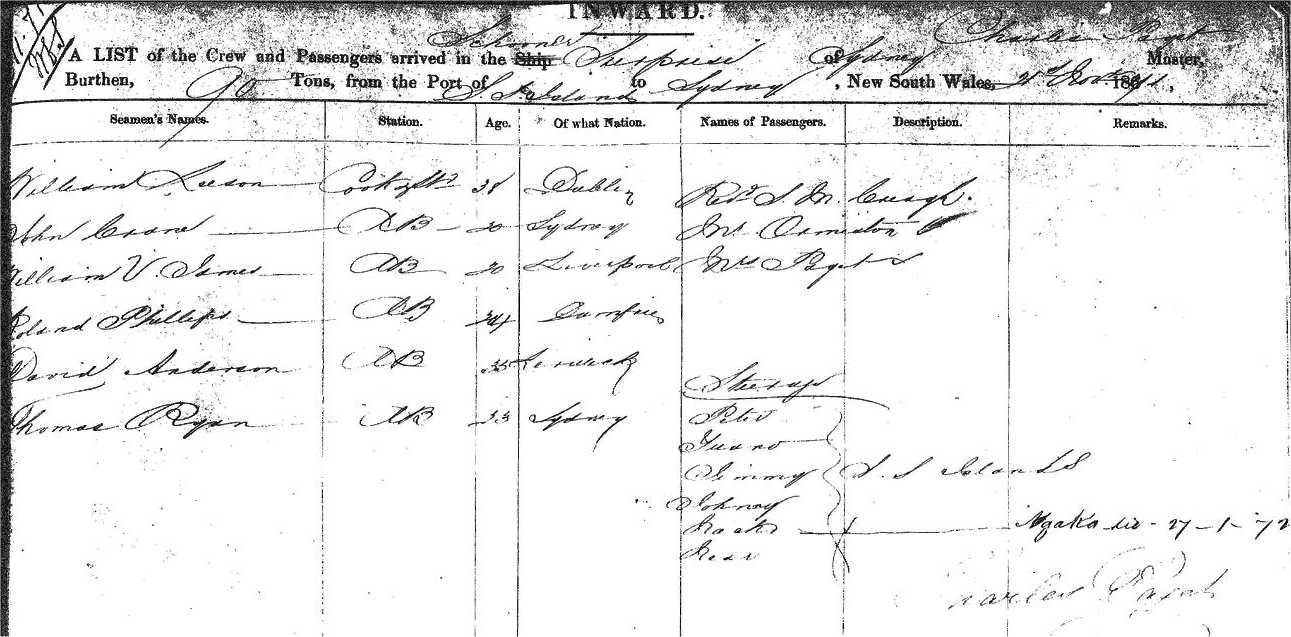 INWARD.
A LIST of the Crew and Passengers arrived in the Ship Schooner Surprise of Sydney Charles Master,
Burthen, 90 Tons, from the Port of S. S. Islands to Sydney, New South Wales, 2 Nov 1871,
Seamen's Names. Station. Age. Of what Nation. Names of Passengers. Description. Remarks.
William Leeson Cook & Std 38 Dublin Revd S. M. Creagh.
John Crane AB 20 Sydney Mr Ormiston
William V. James AB 20 Liverpool Mrs
Roland Phillips AB 34 Dumfries
David Anderson AB 35 Lerwick
Steerage
Thomas Ryan AB 23 Sydney Peter
Jimmy S. S. Islands
Johnny
Ngako 27-1-72
Charles